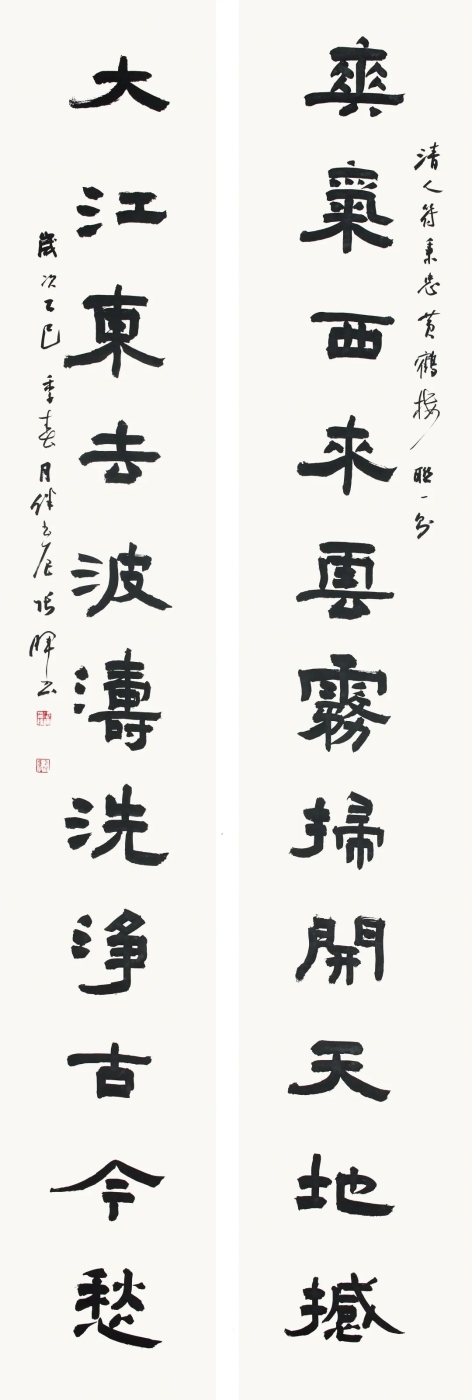 清人符秉忠黄鶴樓聯一則
爽氣西來雲霧掃開天地撼
大江東去波濤洗淨古今愁
歲次乙巳季春月